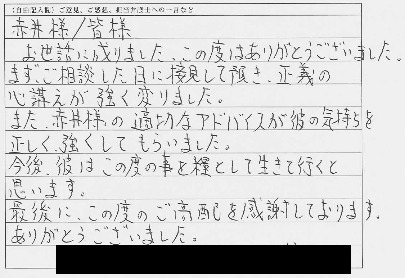 (自由記入欄) ご意見、ご感想、担当弁護士への一言など
赤井様/皆様
お世話に成りました、この度はありがとうございました。
まず、ご相談した日に接見して頂き、正義の
心講えが強く変りました。
また、赤井様の適切なアドバイスが彼の気持ちを
正しく、強くしてもらいました。
今後、彼はこの度の事を糧として生きて行くと
思います。
最後に、この度のご高配を感謝しております。
ありがとうございました。